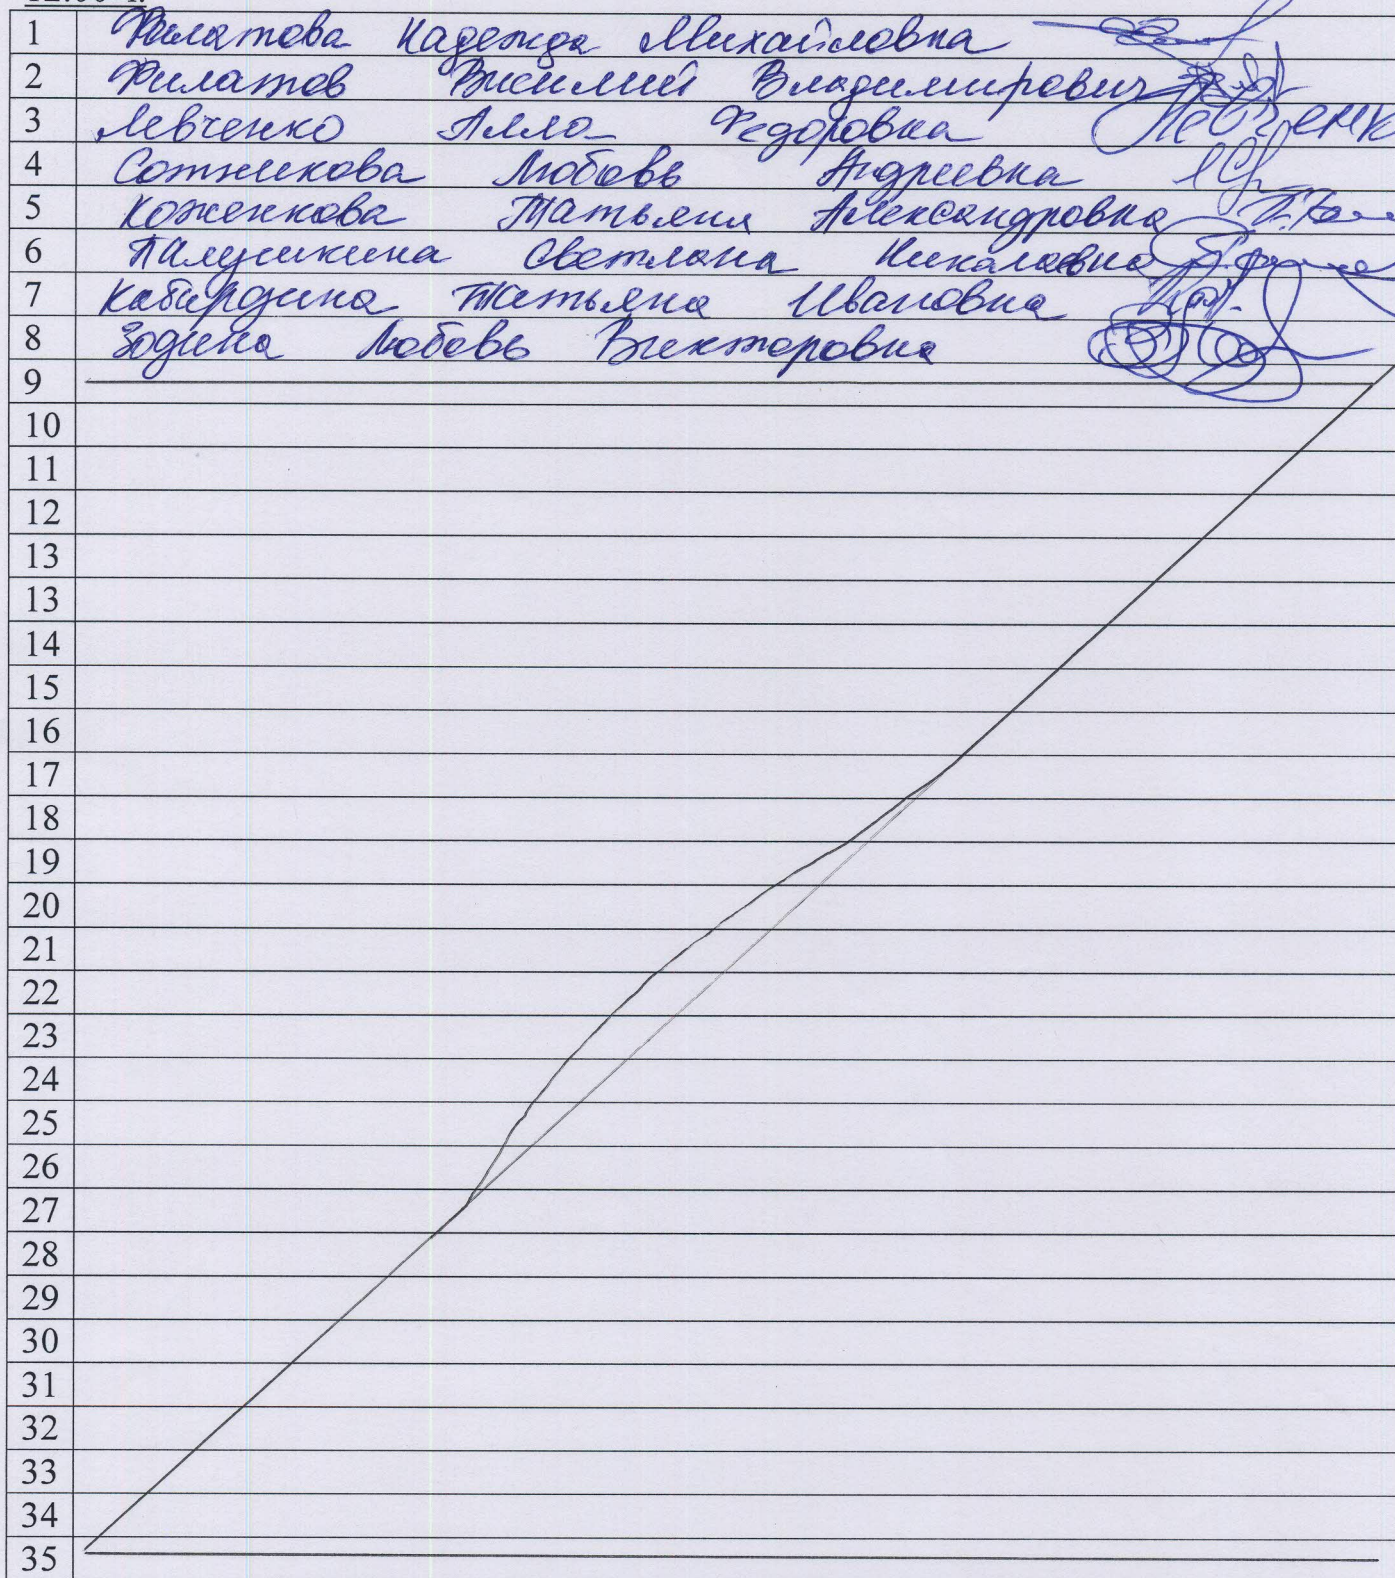 1 Филатова Надежда Михайловна
2 Филатов Василий Владимирович
3 Левченко Алла Федоровна
4 Сотникова Любовь Андреевна
5 Коженкова Татьяна Александровна
6 Светлана Николаевна
7 Кабардина Татьяна Ивановна
8 Зодина Любовь Викторовна
9
10
11
12
13
13
14
15
16
17
18
19
20
21
22
23
24
25
26
27
28
29
30
31
32
33
34
35